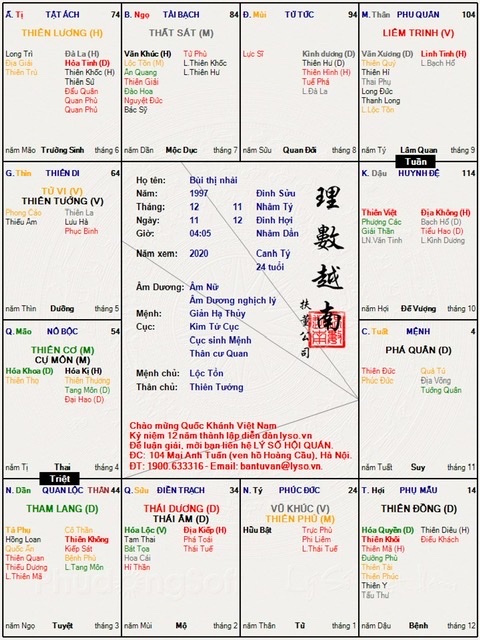 Ấ. Tị TẬT ÁCH 74
THIÊN LƯƠNG (H)
Long Trì Đà La (H)
Địa Giải Hỏa Tinh (D)
Thiên Trù Thiên Khốc (H)
Thiên Sứ
Đẩu Quân
Quan Phù
Quan Phủ
năm Mão Trường Sinh tháng 6
B. Ngọ TÀI BẠCH 84
THẤT SÁT (M)
Văn Khúc (H) Tử Phù
Lộc Tồn (M) L.Thiên Khốc
Ân Quang L.Thiên Hư
Thiên Giải
Đào Hoa
Nguyệt Đức
Bác Sỹ
năm Dần Mộc Dục tháng 7
Đ. Mùi TỬ TỨC 94
Lực Sĩ Kình dương (D)
Thiên Hư (D)
Thiên Hình (H)
Tuế Phá
L.Đà La
năm Sửu Quan Đới tháng 8
M. Thân PHU QUÂN 104
LIÊM TRINH (V)
Văn Xương (D) Linh Tinh (H)
Thiên Quý L.Bạch Hổ
Thiên Hỉ
Thai Phụ
Long Đức
Thanh Long
L.Lộc Tồn
năm Tý Lâm Quan tháng 9
Tuần
G. Thìn THIÊN DI 64
TỬ VI (V)
THIÊN TƯỚNG (V)
Phong Cáo Thiên La
Thiếu Âm Lưu Hà
Phục Binh
năm Thìn Dưỡng tháng 5
Họ tên: Bùi thị nhài
Năm: 1997 Đinh Sửu
Tháng: 12 11 Nhâm Tý
Ngày: 11 12 Đinh Hợi
Giờ: 04:05 Nhâm Dần
Năm xem: 2020 Canh Tý
24 tuổi
Âm Dương: Âm Nữ
Âm Dương nghịch lý
Mệnh: Giản Hạ Thủy
Cục: Kim Tứ Cục
Cục sinh Mệnh
Thân cư Quan
Mệnh chủ: Lộc Tồn
Thân chủ: Thiên Tướng
理數越南
扶董公司
Chào mừng Quốc Khánh Việt Nam
Kỷ niệm 12 năm thành lập diễn đàn lyso.vn.
Để luận giải, mời bạn liên hệ LÝ SỐ HỘI QUÁN.
ĐC: 104 Mai Anh Tuấn (ven hồ Hoàng Cầu), Hà Nội.
ĐT: 1900.633316 - Email: bantuvan@lyso.vn.
K. Dậu HUYNH ĐỆ 114
Thiên Việt Địa Không (H)
Phượng Các Bạch Hổ (D)
Giải Thần Tiểu Hao (D)
LN.Văn Tinh L.Kình Dương
năm Hợi Đế Vượng tháng 10
Q. Mão NÔ BỘC 54
THIÊN CƠ (M)
CỰ MÔN (M)
Hóa Khoa (D) Hóa Kị (H)
Thiên Thọ Thiên Thương
Tang Môn (D)
Đại Hao (D)
năm Tị Thai tháng 4
Triệt
C. Tuất MỆNH 4
PHÁ QUÂN (D)
Thiên Đức Quả Tú
Phúc Đức Địa Võng
Tướng Quân
năm Tuất Suy tháng 11
N. Dần QUAN LỘC THÂN 44
THAM LANG (D)
Tả Phụ Cô Thần
Hồng Loan Thiên Không
Quốc Ấn Kiếp Sát
Thiên Quan Bệnh Phù
Thiếu Dương L.Tang Môn
L.Thiên Mã
năm Ngọ Tuyệt tháng 3
Q. Sửu ĐIỀN TRẠCH 34
THÁI DƯƠNG (D)
THÁI ÂM (D)
Hóa Lộc (V) Địa Kiếp (H)
Tam Thai Phá Toái
Bát Tọa Thái Tuế
Hoa Cái
Hỉ Thần
năm Mùi Mộ tháng 2
N. Tý PHÚC ĐỨC 24
VŨ KHÚC (V)
THIÊN PHỦ (M)
Hữu Bật Trực Phù
Phi Liêm
L.Thái Tuế
năm Thân Tử tháng 1
T. Hợi PHỤ MẪU 14
THIÊN ĐỒNG (D)
Hóa Quyền (D) Thiên Diêu (H)
Thiên Khôi Điếu Khách
Thiên Mã (H)
Đường Phù
Thiên Tài
Thiên Phúc
Thiên Y
Tấu Thư
năm Dậu Bệnh tháng 12